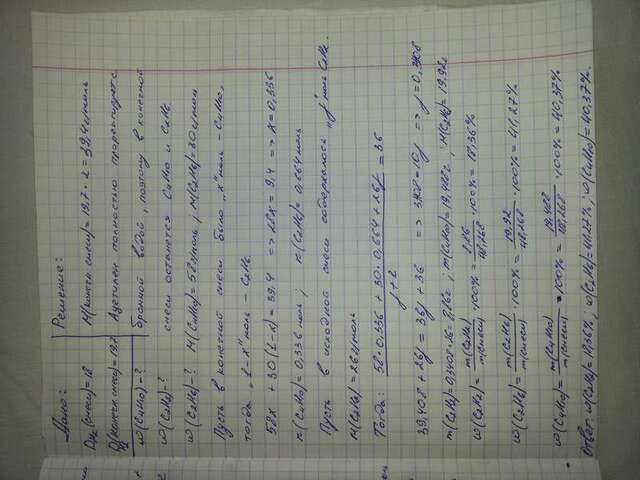 Дано:
D(смеси)=18
D(конечн. смеси)=19,7
ω(C₄H₁₀)-?
ω(C₂H₂)-?
ω(C₂H₆)-?
Решение:
M(конечн. смеси)=19,7·2=39,4 г/моль
Ацетилен полностью прореагирует с
бромной водой, поэтому в конечной
смеси останется C₄H₁₀ и C₂H₆
M(C₄H₁₀)=58 г/моль; M(C₂H₆)=30 г/моль
Пусть в конечной смеси было "x" моль - C₄H₁₀,
тогда "1-x" моль - C₂H₆
58x + 30(1-x)=39,4 => 28x = 9,4 => x = 0,336
n(C₄H₁₀)=0,336 моль; n(C₂H₆)=0,664 моль
Пусть в исходной смеси содержалось "y" моль C₂H₂.
M(C₂H₂)=26 г/моль
Тогда: 58·0,336 + 30·0,664 + 26y / y+1 = 36
39,408 + 26y = 36y + 36 => 3,408 = 10y => y = 0,3408
m(C₂H₂)=0,3408·26=8,86г; m(C₄H₁₀)=19,488г; m(C₂H₆)=19,92г
ω(C₂H₂)= m(C₂H₂) / m(смеси) ·100% = 8,86 / 48,268 ·100% = 18,36%
ω(C₂H₆)= m(C₂H₆) / m(смеси) ·100% = 19,92 / 48,268 ·100% = 41,27%
ω(C₄H₁₀)= m(C₄H₁₀) / m(смеси) ·100% = 19,488 / 48,268 ·100% = 40,37%
Ответ: ω(C₂H₂)=18,36%; ω(C₂H₆)=41,27%; ω(C₄H₁₀)=40,37%.